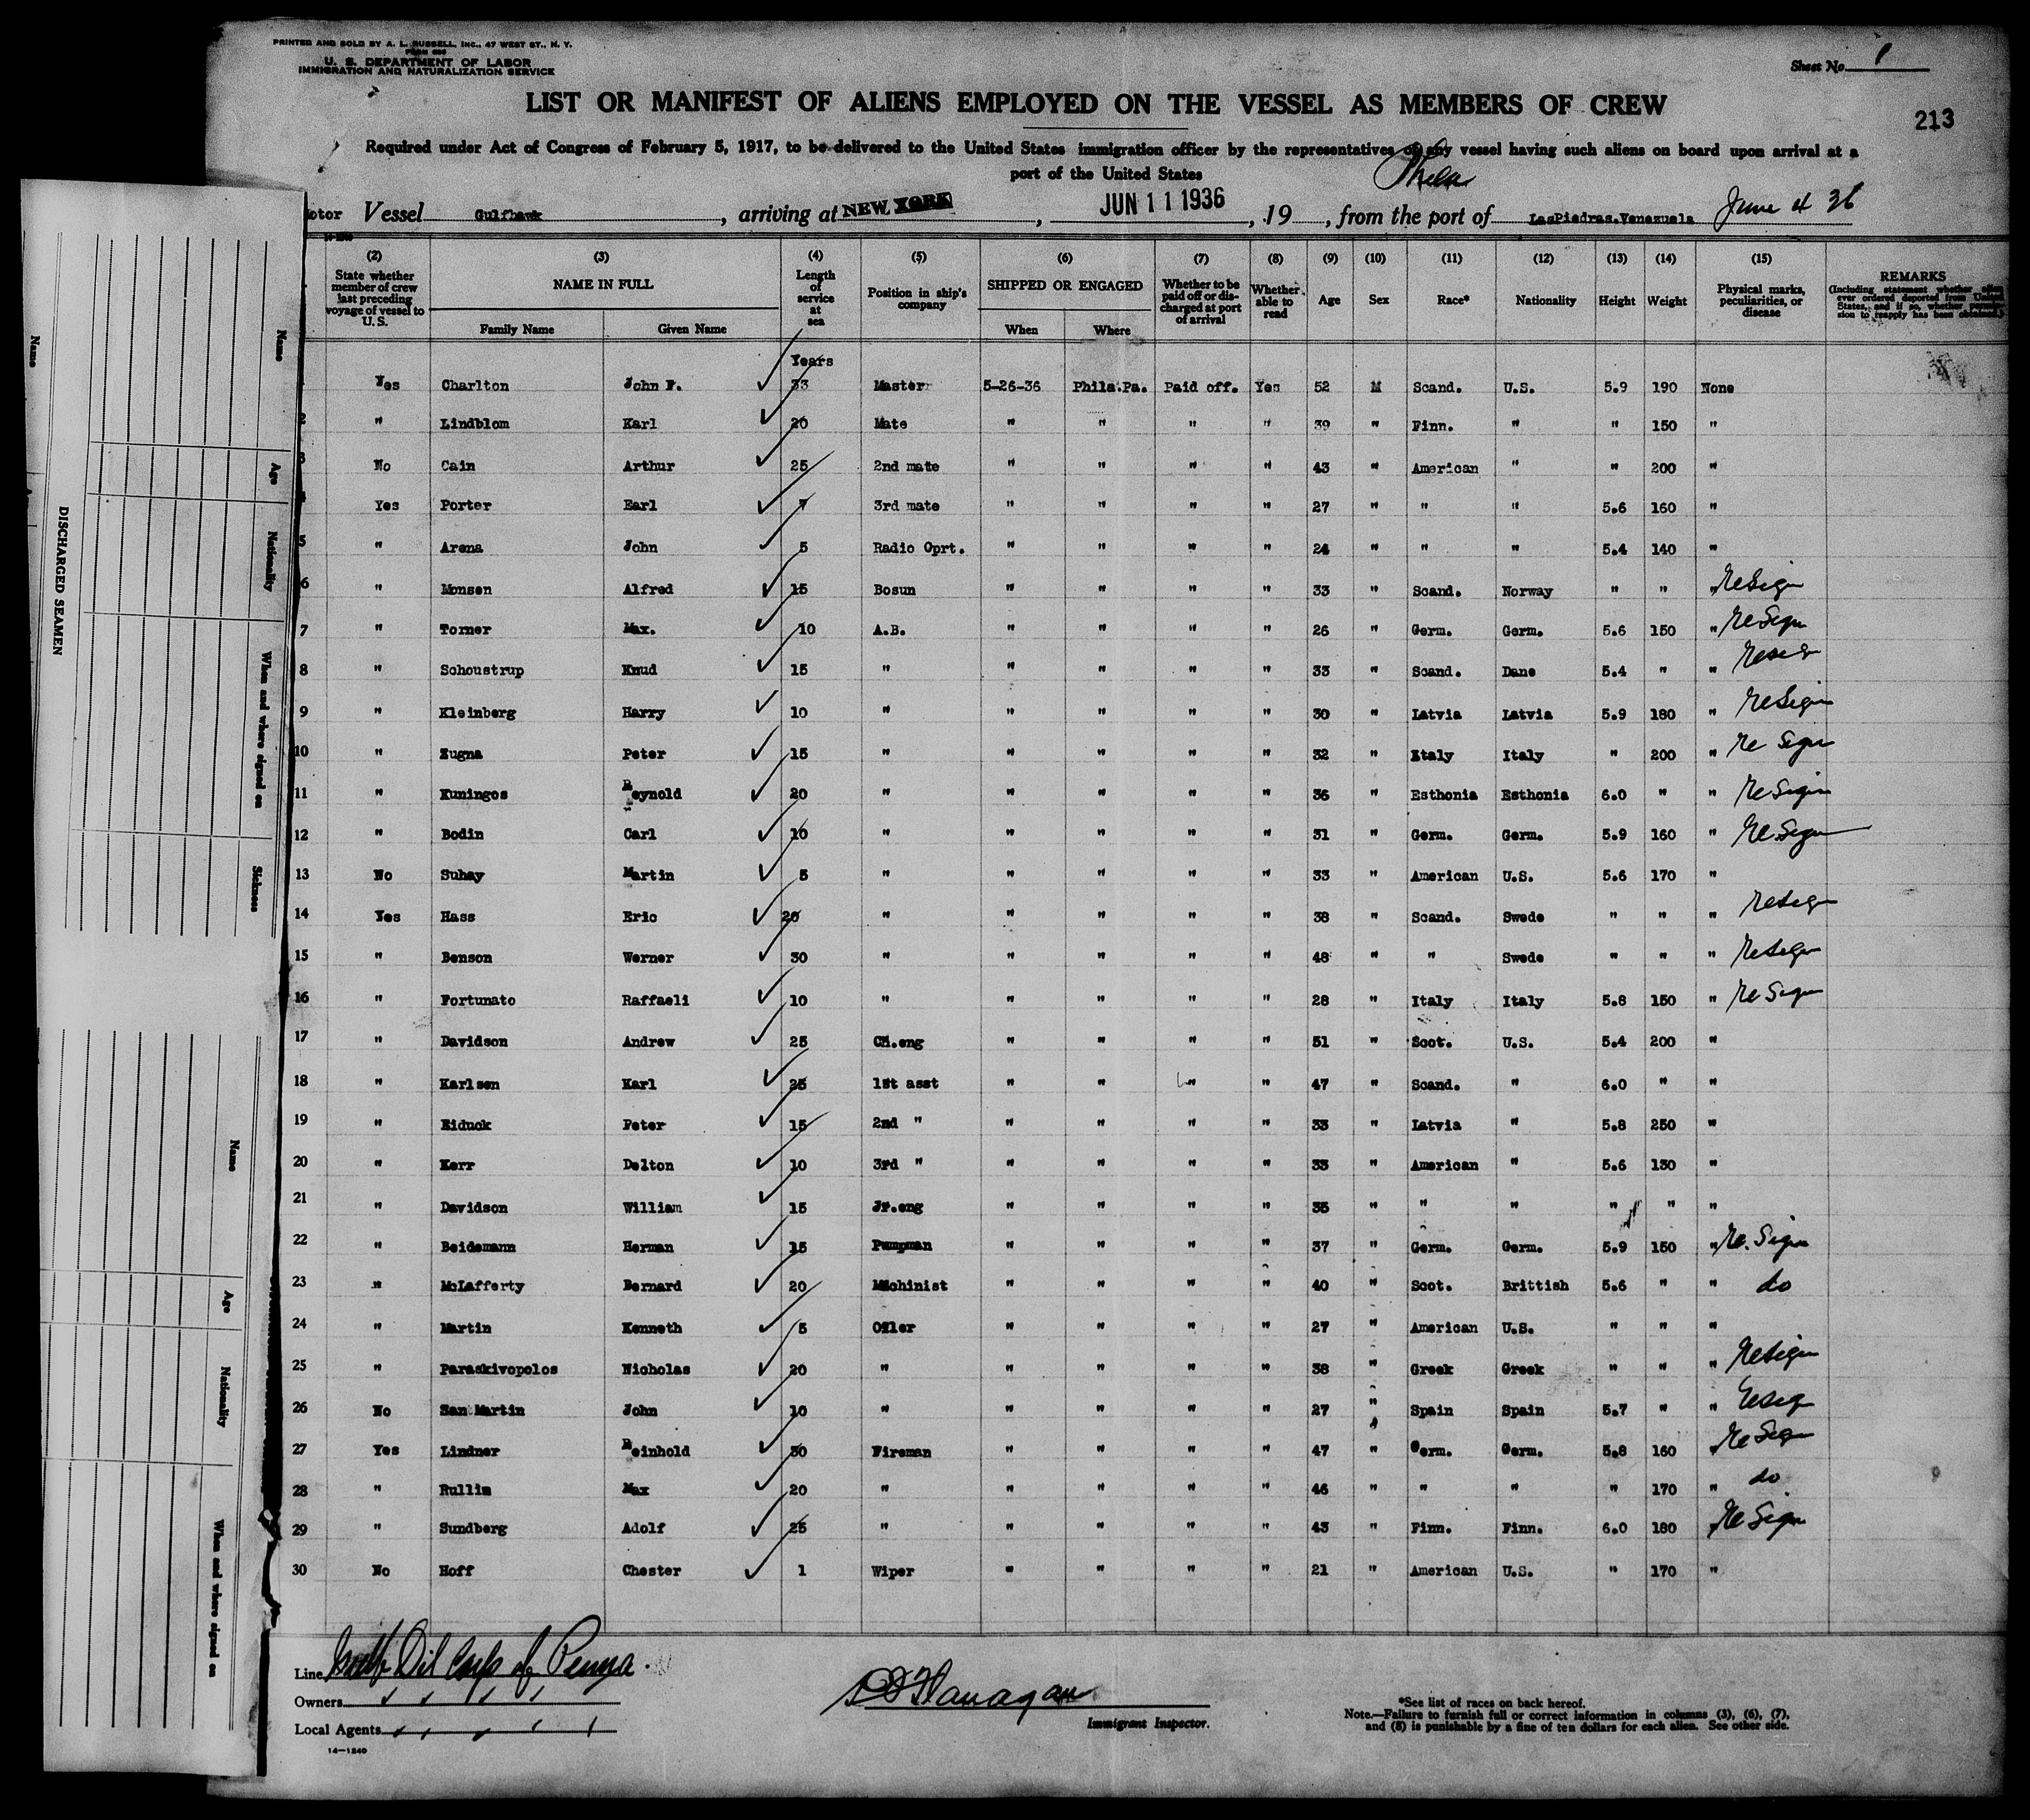 PRINTED AND SOLD BY A. L. RUSSELL, INC., 47 WEST ST., N. Y.
U. S. DEPARTMENT OF LABOR
IMMIGRATION AND NATURALIZATION SERVICE
Sheet No. 1
LIST OR MANIFEST OF ALIENS EMPLOYED ON THE VESSEL AS MEMBERS OF CREW
213
Required under Act of Congress of February 5, 1917, to be delivered to the United States immigration officer by the representatives of any vessel having such aliens on board upon arrival at a
port of the United States
Phila
otor Vessel Gulfhawk, arriving at NEW YORK, JUN 11 1936, 19, from the port of LasPiedras.Venezuela June 4 36
(2) (3) (4) (5) (6) (7) (8) (9) (10) (11) (12) (13) (14) (15)
State whether member of crew last preceding voyage of vessel to U. S. NAME IN FULL Family Name Given Name Length of service at sea Position in ship's company SHIPPED OR ENGAGED When Where Whether to be paid off or discharged at port of arrival Whether able to read Age Sex Race* Nationality Height Weight Physical marks, peculiarities, or disease REMARKS (Including statement whether alien ever ordered deported from United States, and if so, whether permission to reapply has been obtained.)
Years
Yes Charlton John F. 33 Master 5-26-36 Phila.Pa. Paid off. Yes 52 M Scand. U.S. 5.9 190 None
2 " Lindblom Karl 20 Mate " " " " 39 " Finn. " " 150 "
3 No Cain Arthur 25 2nd mate " " " " 43 " American " " 200 "
4 Yes Porter Earl 7 3rd mate " " " " 27 " " " 5.6 160 "
5 " Arena John 5 Radio Oprt. " " " " 24 " " " 5.4 140 "
6 " Monsen Alfred 15 Bosun " " " " 33 " Scand. Norway " " " ReSign
7 " Torner Max. 10 A.B. " " " " 26 " Germ. Germ. 5.6 150 " ReSign
8 " Schoustrup Knud 15 " " " " " 33 " Scand. Dane 5.4 " " Resign
9 " Kleinberg Harry 10 " " " " " 30 " Latvia Latvia 5.9 180 " ReSign
10 " Zugna Peter 15 " " " " " 32 " Italy Italy " 200 " Re Sign
11 " Kuningos Reynold 20 " " " " " 36 " Esthonia Esthonia 6.0 " " ReSign
12 " Bodin Carl 10 " " " " " 31 " Germ. Germ. 5.9 160 " Re.Sign
13 No Suhay Martin 5 " " " " " 33 " American U.S. 5.6 170 "
14 Yes Hass Eric 20 " " " " " 38 " Scand. Swede " " " Resign
15 " Benson Werner 30 " " " " " 48 " " Swede " " " Resign
16 " Fortunato Raffaeli 10 " " " " " 28 " Italy Italy 5.8 150 " Re Sign
17 " Davidson Andrew 25 Ch.eng " " " " 51 " Scot. U.S. 5.4 200 "
18 " Karlsen Karl 25 1st asst " " " " 47 " Scand. " 6.0 " "
19 " Eiduck Peter 15 2nd " " " " " 33 " Latvia " 5.8 250 "
20 " Kerr Delton 10 3rd " " " " " 33 " American " 5.6 130 "
21 " Davidson William 15 Jr.eng " " " " 35 " " " " " "
22 " Beidemann Herman 15 Pumpman " " " " 37 " Germ. Germ. 5.9 150 " Re. Sign
23 " McLafferty Bernard 20 Machinist " " " " 40 " Scot. Brittish 5.6 " " do
24 " Martin Kenneth 5 Oiler " " " " 27 " American U.S. " " "
25 " Paraskivopolos Nicholas 20 " " " " " 38 " Greek Greek " " " Resign
26 No San Martin John 10 " " " " " 27 " Spain Spain 5.7 " " Resign
27 Yes Lindner Reinhold 30 Fireman " " " " 47 " Germ. Germ. 5.8 160 " Re Sign
28 " Rullis Max 20 " " " " " 46 " " " " 170 " do
29 " Sundberg Adolf 25 " " " " " 43 " Finn. Finn. 6.0 180 " Re Sign
30 No Hoff Chester 1 Wiper " " " " 21 " American U.S. " 170 "
Line Gulf Oil Corp of Penna.
Owners " " " "
Local Agents " " " " "
14—1240
Flanagan
Immigrant Inspector.
*See list of races on back hereof.
Note.—Failure to furnish full or correct information in columns (3), (6), (7),
and (8) is punishable by a fine of ten dollars for each alien. See other side.
DISCHARGED SEAMEN
Name
Name Age Nationality When and where signed on Sickness
Name Age Nationality When and where signed on